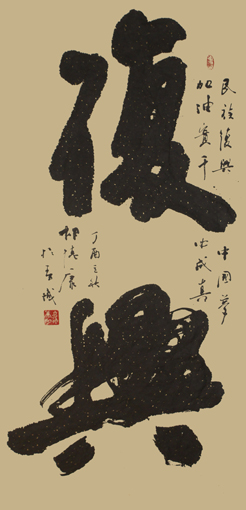 復興
民族復興
加油實干
中國夢
必成真
丁酉之秋
於吉城